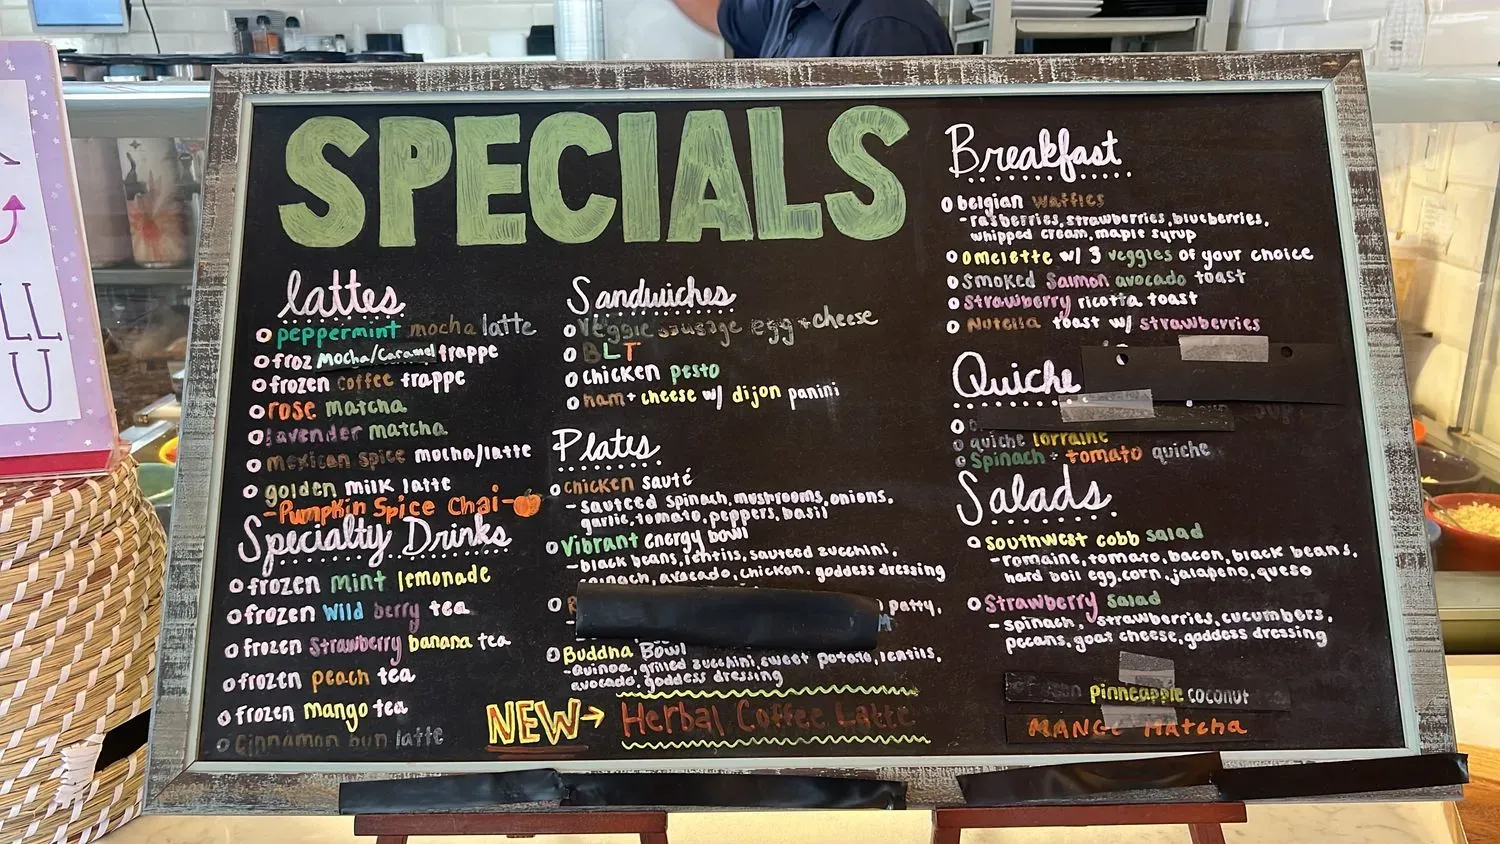 SPECIALS
lattes
peppermint mocha latte
froz Mocha/Caramel frappe
frozen coffee frappe
rose matcha
lavender matcha
mexican spice mocha/latte
golden milk latte
-Pumpkin Spice Chai-
Specialty Drinks
frozen mint lemonade
frozen wild berry tea
frozen Strawberry banana tea
frozen peach tea
frozen mango tea
Cinnamon bun latte
Sandwiches
Veggie sausage egg + cheese
BLT
chicken pesto
ham + cheese w/ dijon panini
Plates
chicken sauté
- sauteed spinach, mushrooms, onions,
garlic, tomato, peppers, basil
Vibrant energy bowl
- black beans, lentils, sauteed zucchini,
spinach, avocado, chicken. goddess dressing
patty,
Buddha Bowl
- Quinoa, grilled zucchini, sweet potato, lentils,
avocado, goddess dressing
NEW→ Herbal Coffee Latte
Breakfast
belgian waffles
- rasberries, strawberries, blueberries,
whipped cream, maple syrup
omelette w/ 3 veggies of your choice
Smoked Salmon avocado toast
Strawberry ricotta toast
Nutella toast w/ strawberries
Quiche
quiche lorraine
Spinach + tomato quiche
Salads
Southwest cobb salad
- romaine, tomato, bacon, black beans,
hard boil egg, corn, jalapeño, queso
Strawberry Salad
- spinach, strawberries, cucumbers,
pecans, goat cheese, goddess dressing
pinneapple coconut
MANGO Matcha
LL
U